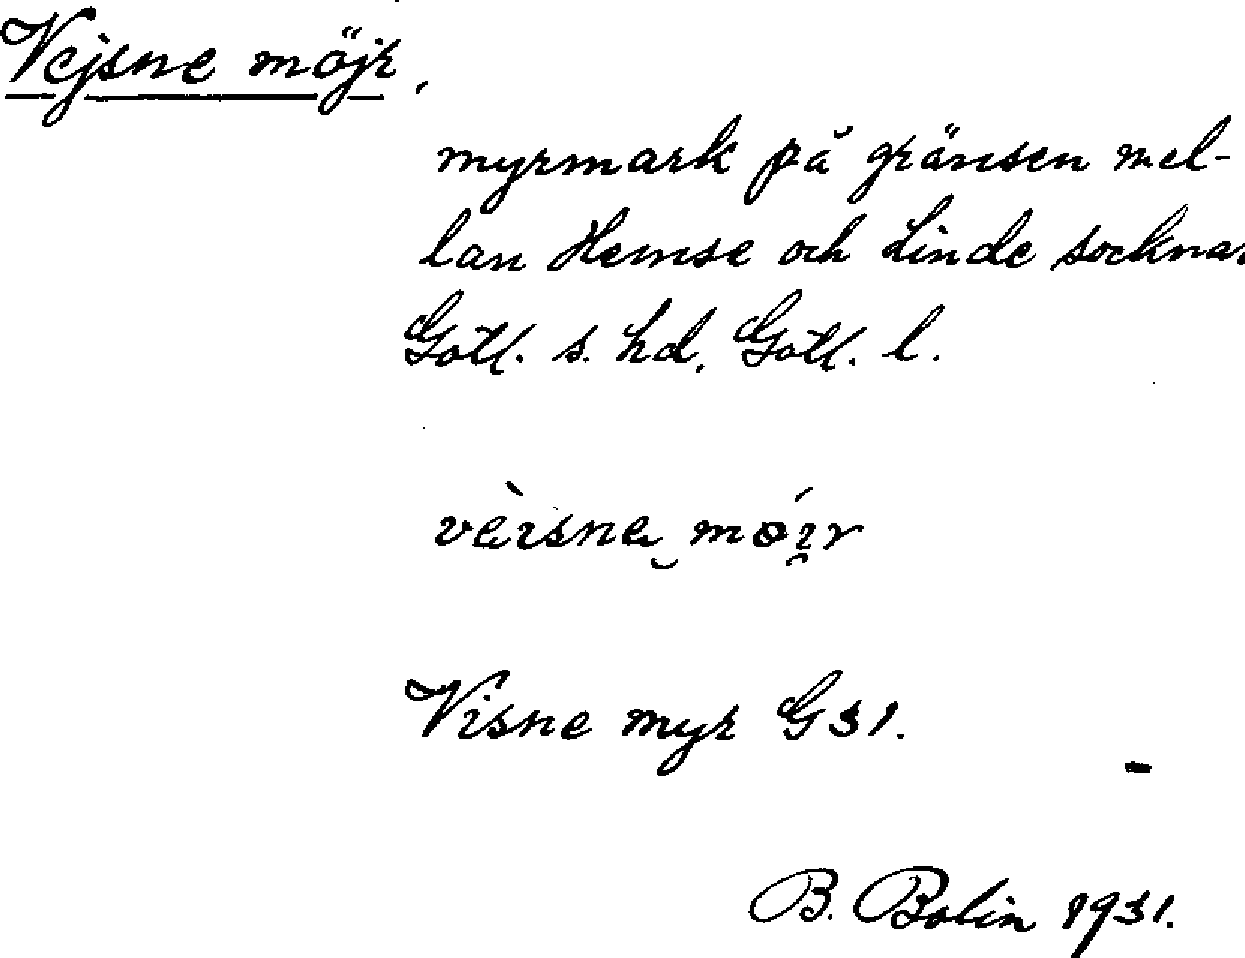 Vejsne möjr,
myrmark på gränsen mel-
lan Hemse och Linde socknar
Gotl. s. hd, Gotl. l.
vèisne móir
Visne myr G 31.
B. Bolin 1931.